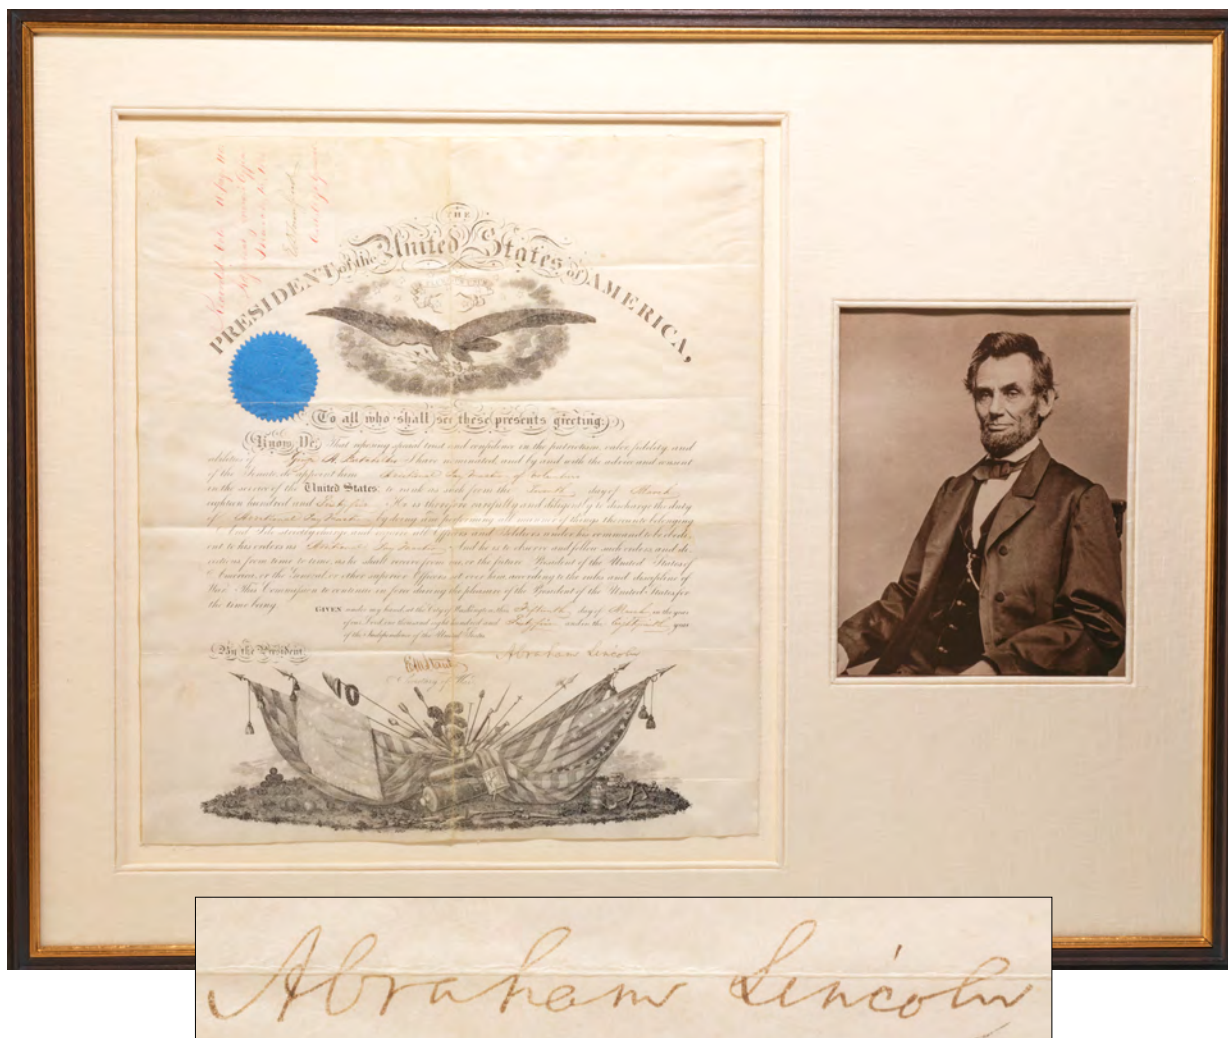 THE
PRESIDENT of the United States of AMERICA,
To all who shall see these presents greeting:
Know Ye, That reposing special trust and confidence in the patriotism, valor, fidelity, and
abilities of George A. I have nominated, and by and with the advice and consent
of the Senate do appoint him Additional Pay Master of Volunteers
in the service of the United States: to rank as such from the day of March
eighteen hundred and Sixty five He is therefore carefully and diligently to discharge the duty
of Additional Pay Master by doing and performing all manner of things thereunto belonging
And I do strictly charge and require all Officers and Soldiers under his command to be obedi-
ent to his orders as Additional Pay Master And he is to observe and follow such orders, and di-
rections from time to time, as he shall receive from me, or the future President of the United States of
America, or the General or other superior Officers set over him, according to the rules and discipline of
War. This Commission to continue in force during the pleasure of the President of the United States for
the time being.
GIVEN under my hand at the City of Washington, this Fifteenth day of March in the year
of our Lord one thousand eight hundred and Sixty five and in the Eighty ninth year
of the Independence of the United States.
By the President
Abraham Lincoln
Secretary of War
Abraham Lincoln